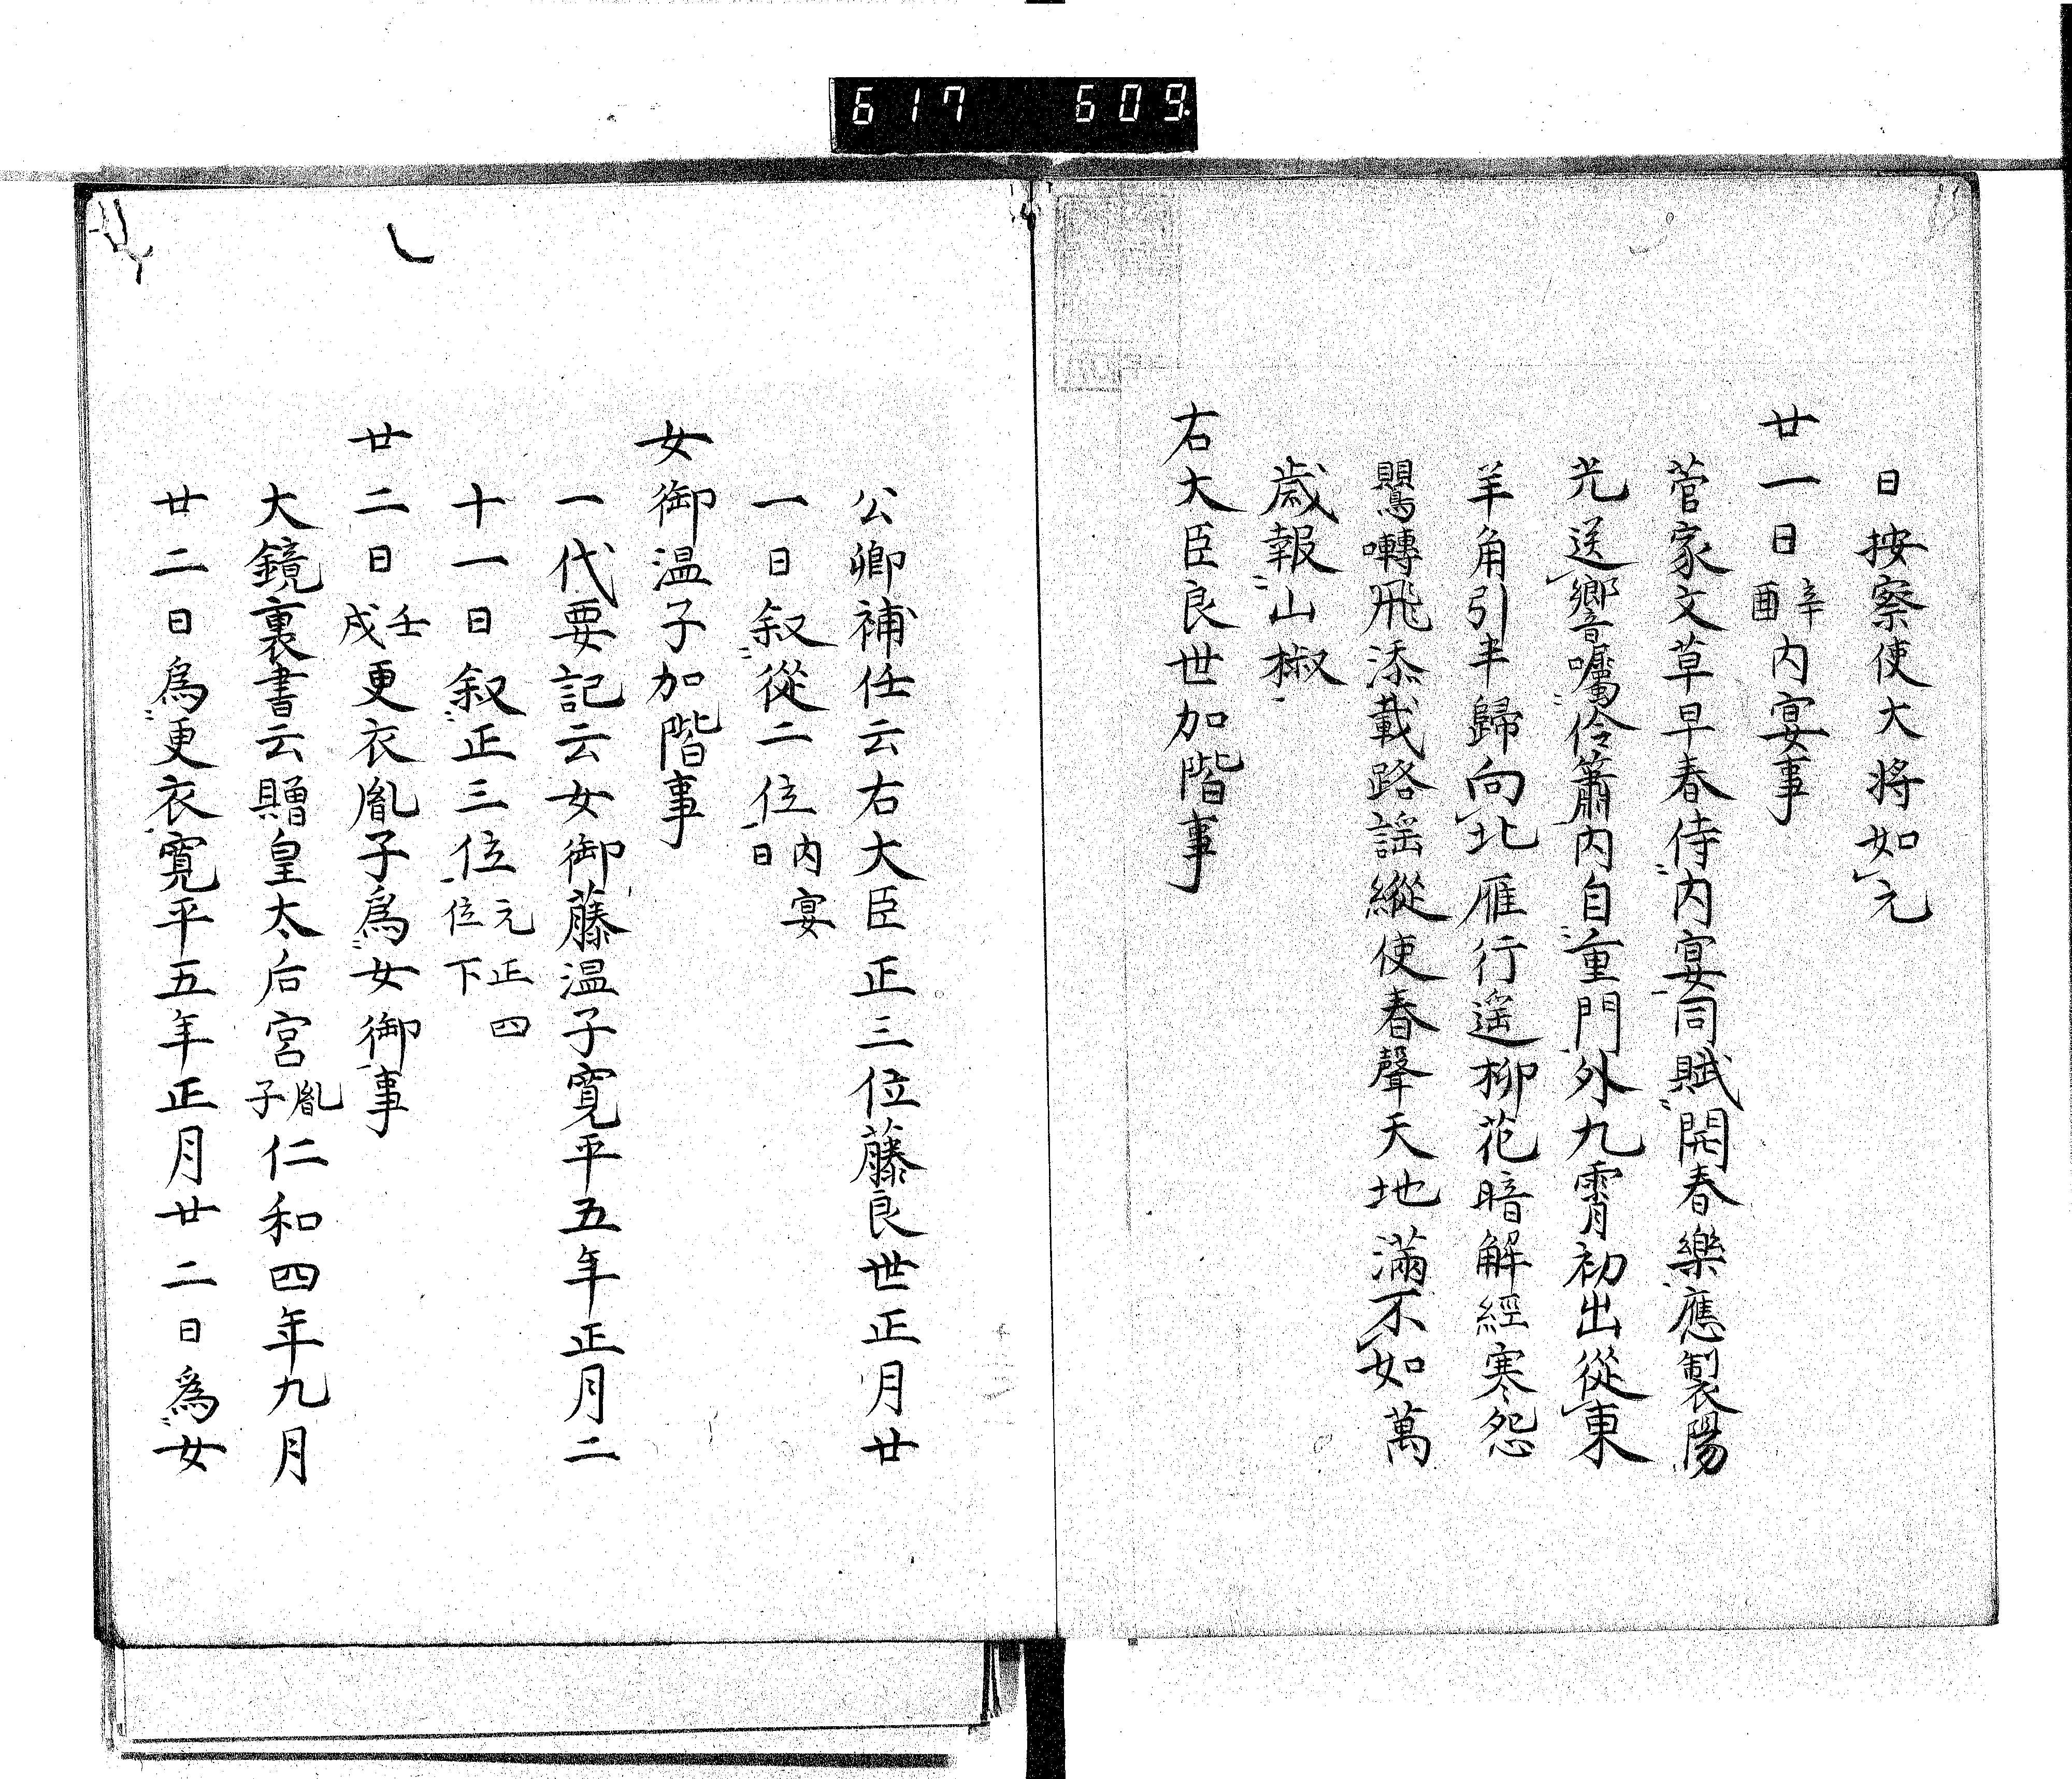 617 609
日按察使大将如元
廿一日辛酉内宴事
菅家文草早春侍内宴同賦開春樂應製陽
光送響囑伶簫内自重門外九霄初出從東
羊角引半歸向北雁行遥柳花暗解經寒怨
鸎囀飛添載路謡縱使春聲天地滿不如萬
歳報山椒
右大臣良世加階事
公卿補任云右大臣正三位藤良世正月廿
一日叙從二位内宴日
女御温子加階事
一代要記云女御藤温子寛平五年正月二
十一日叙正三位元正四位下
廿二日壬戌更衣胤子爲女御事
大鏡裏書云贈皇太后宮胤子仁和四年九月
廿二日爲更衣寛平五年正月廿二日爲女